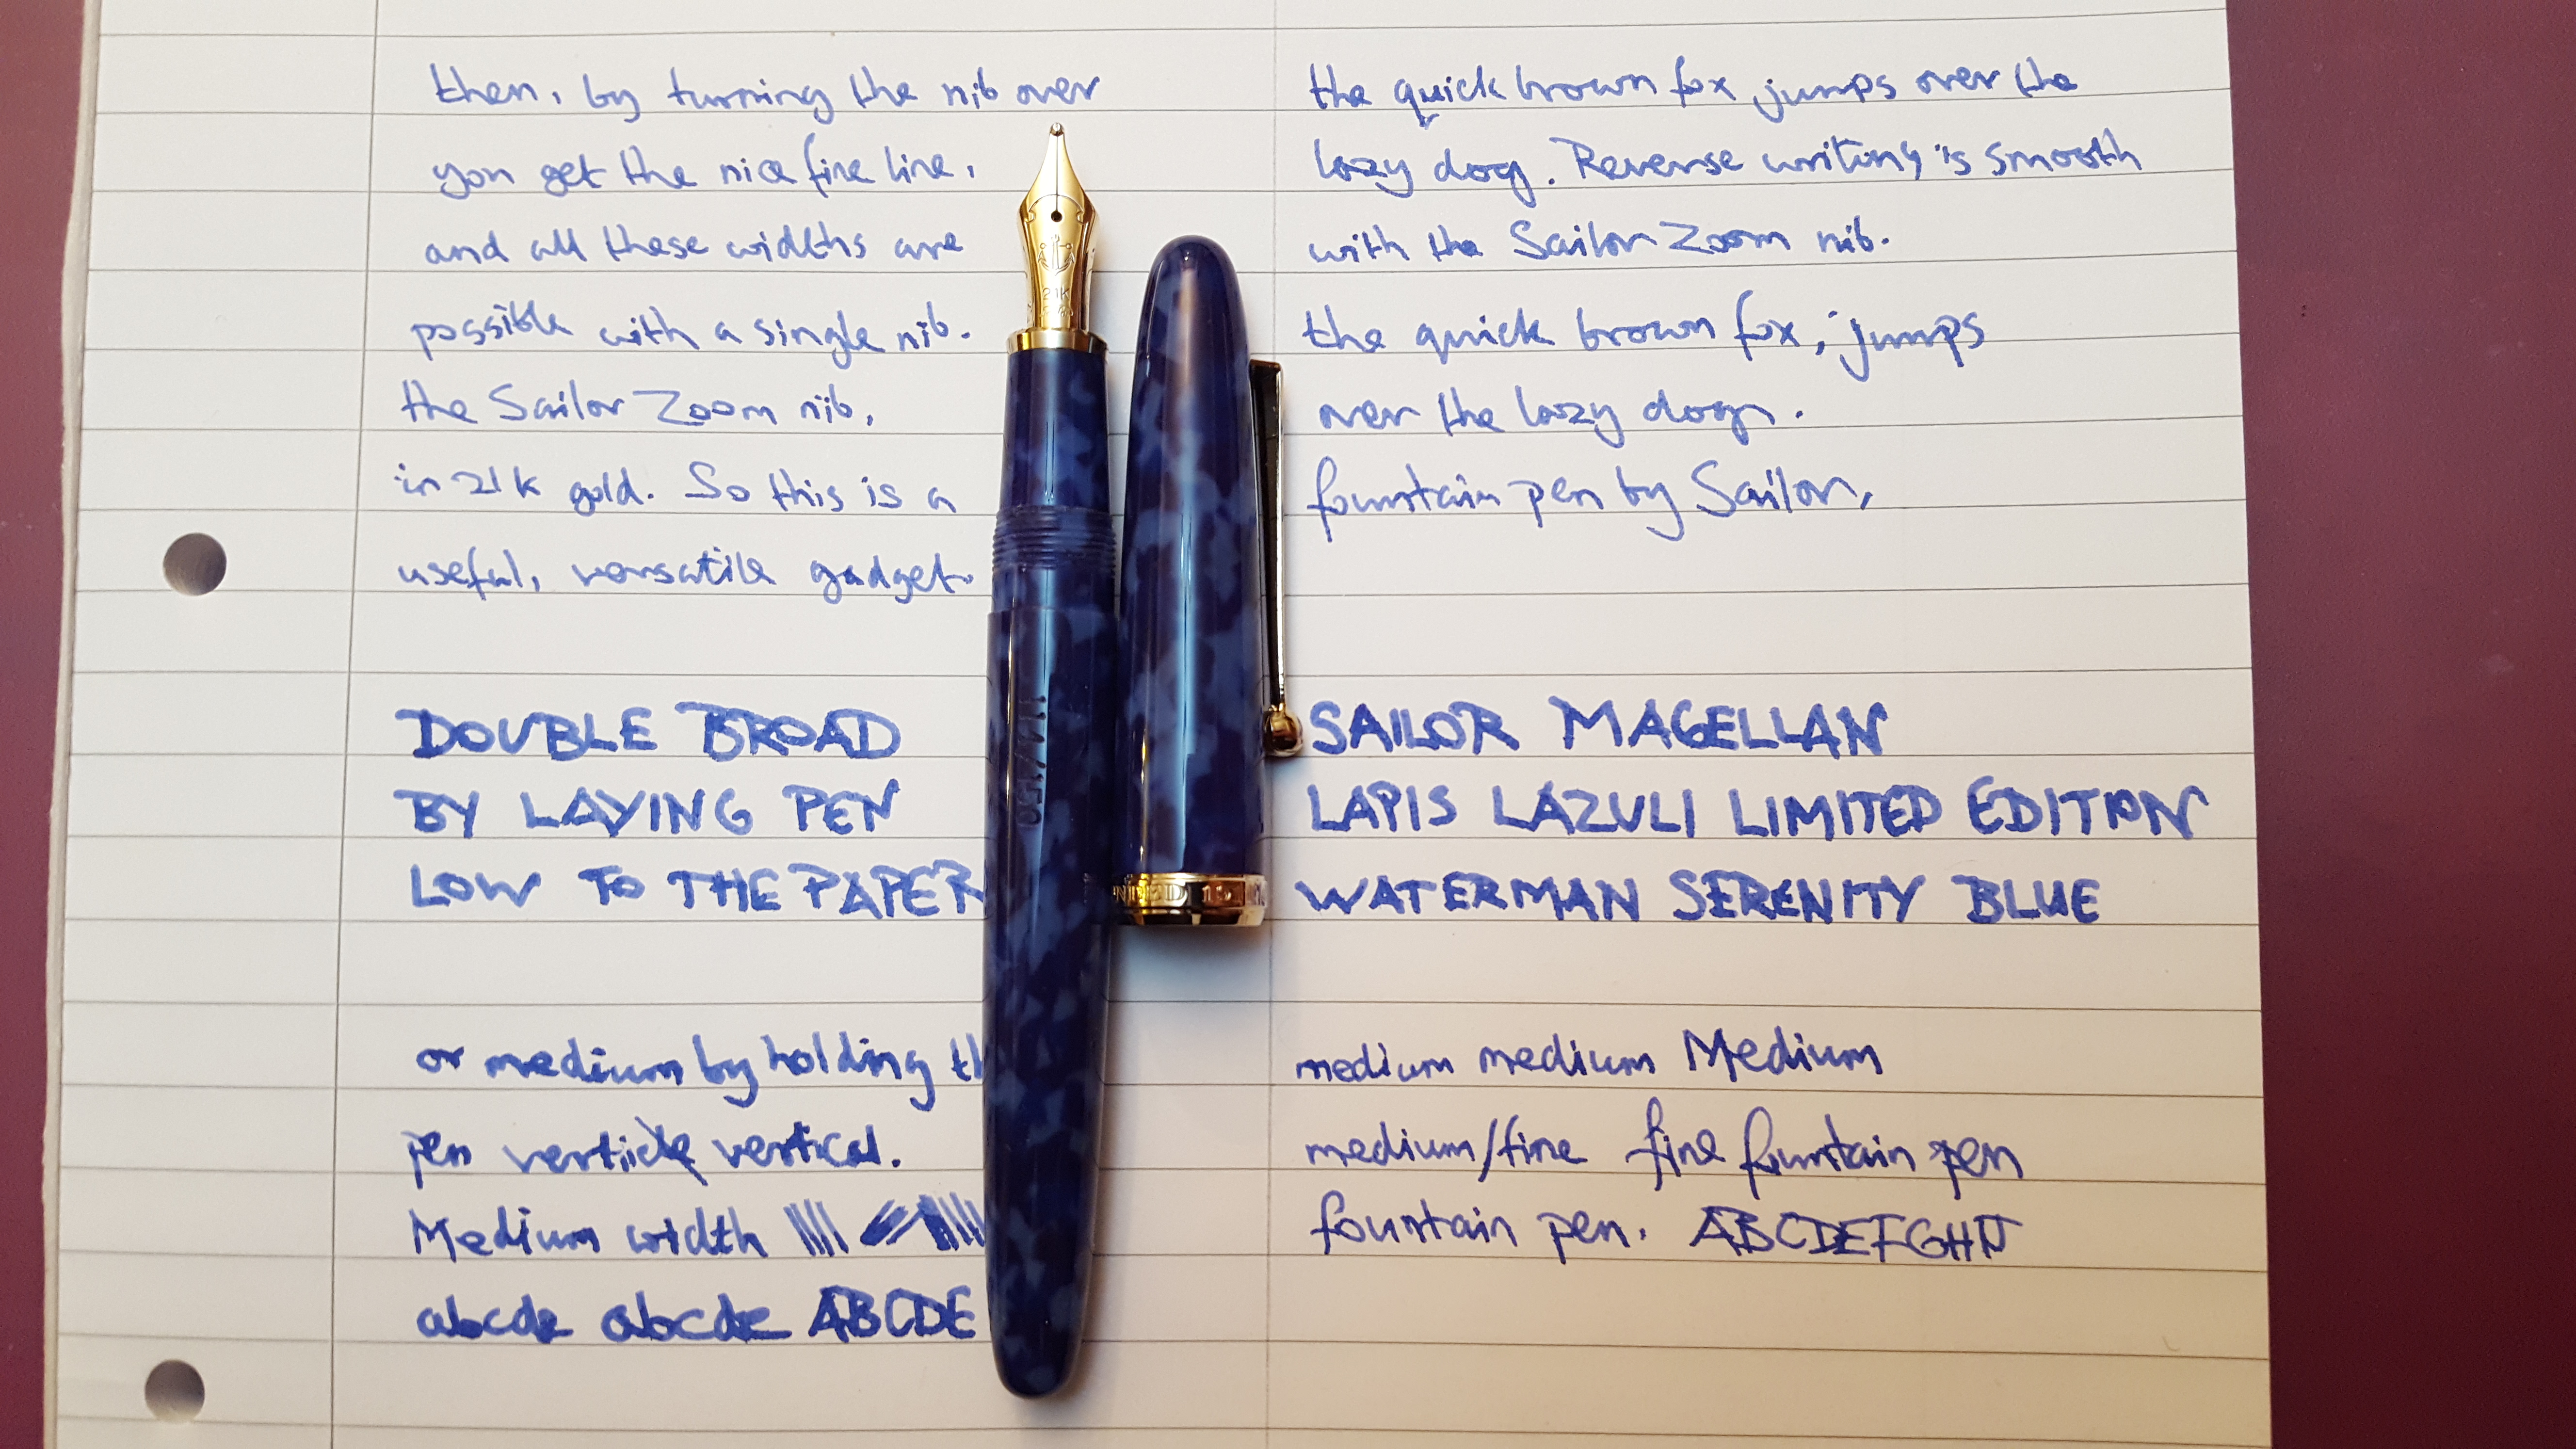 then, by turning the nib over
you get the nice fine line,
and all these widths are
possible with a single nib.
the Sailor Zoom nib,
in 21k gold. So this is a
useful, versatile gadget.
DOUBLE BROAD
BY LAYING PEN
LOW TO THE PAPER
or medium by holding th
pen verticle vertical.
Medium width
abcde abcde ABCDE
21K
114/150
the quick brown fox jumps over the
lazy dog. Reverse writing is smooth
with the Sailor Zoom nib.
the quick brown fox, jumps
over the lazy dog.
fountain pen by Sailor,
SAILOR MAGELLAN
LAPIS LAZULI LIMITED EDITION
WATERMAN SERENITY BLUE
medium medium Medium
medium/fine fine fountain pen
fountain pen. ABCDEFGHIJ